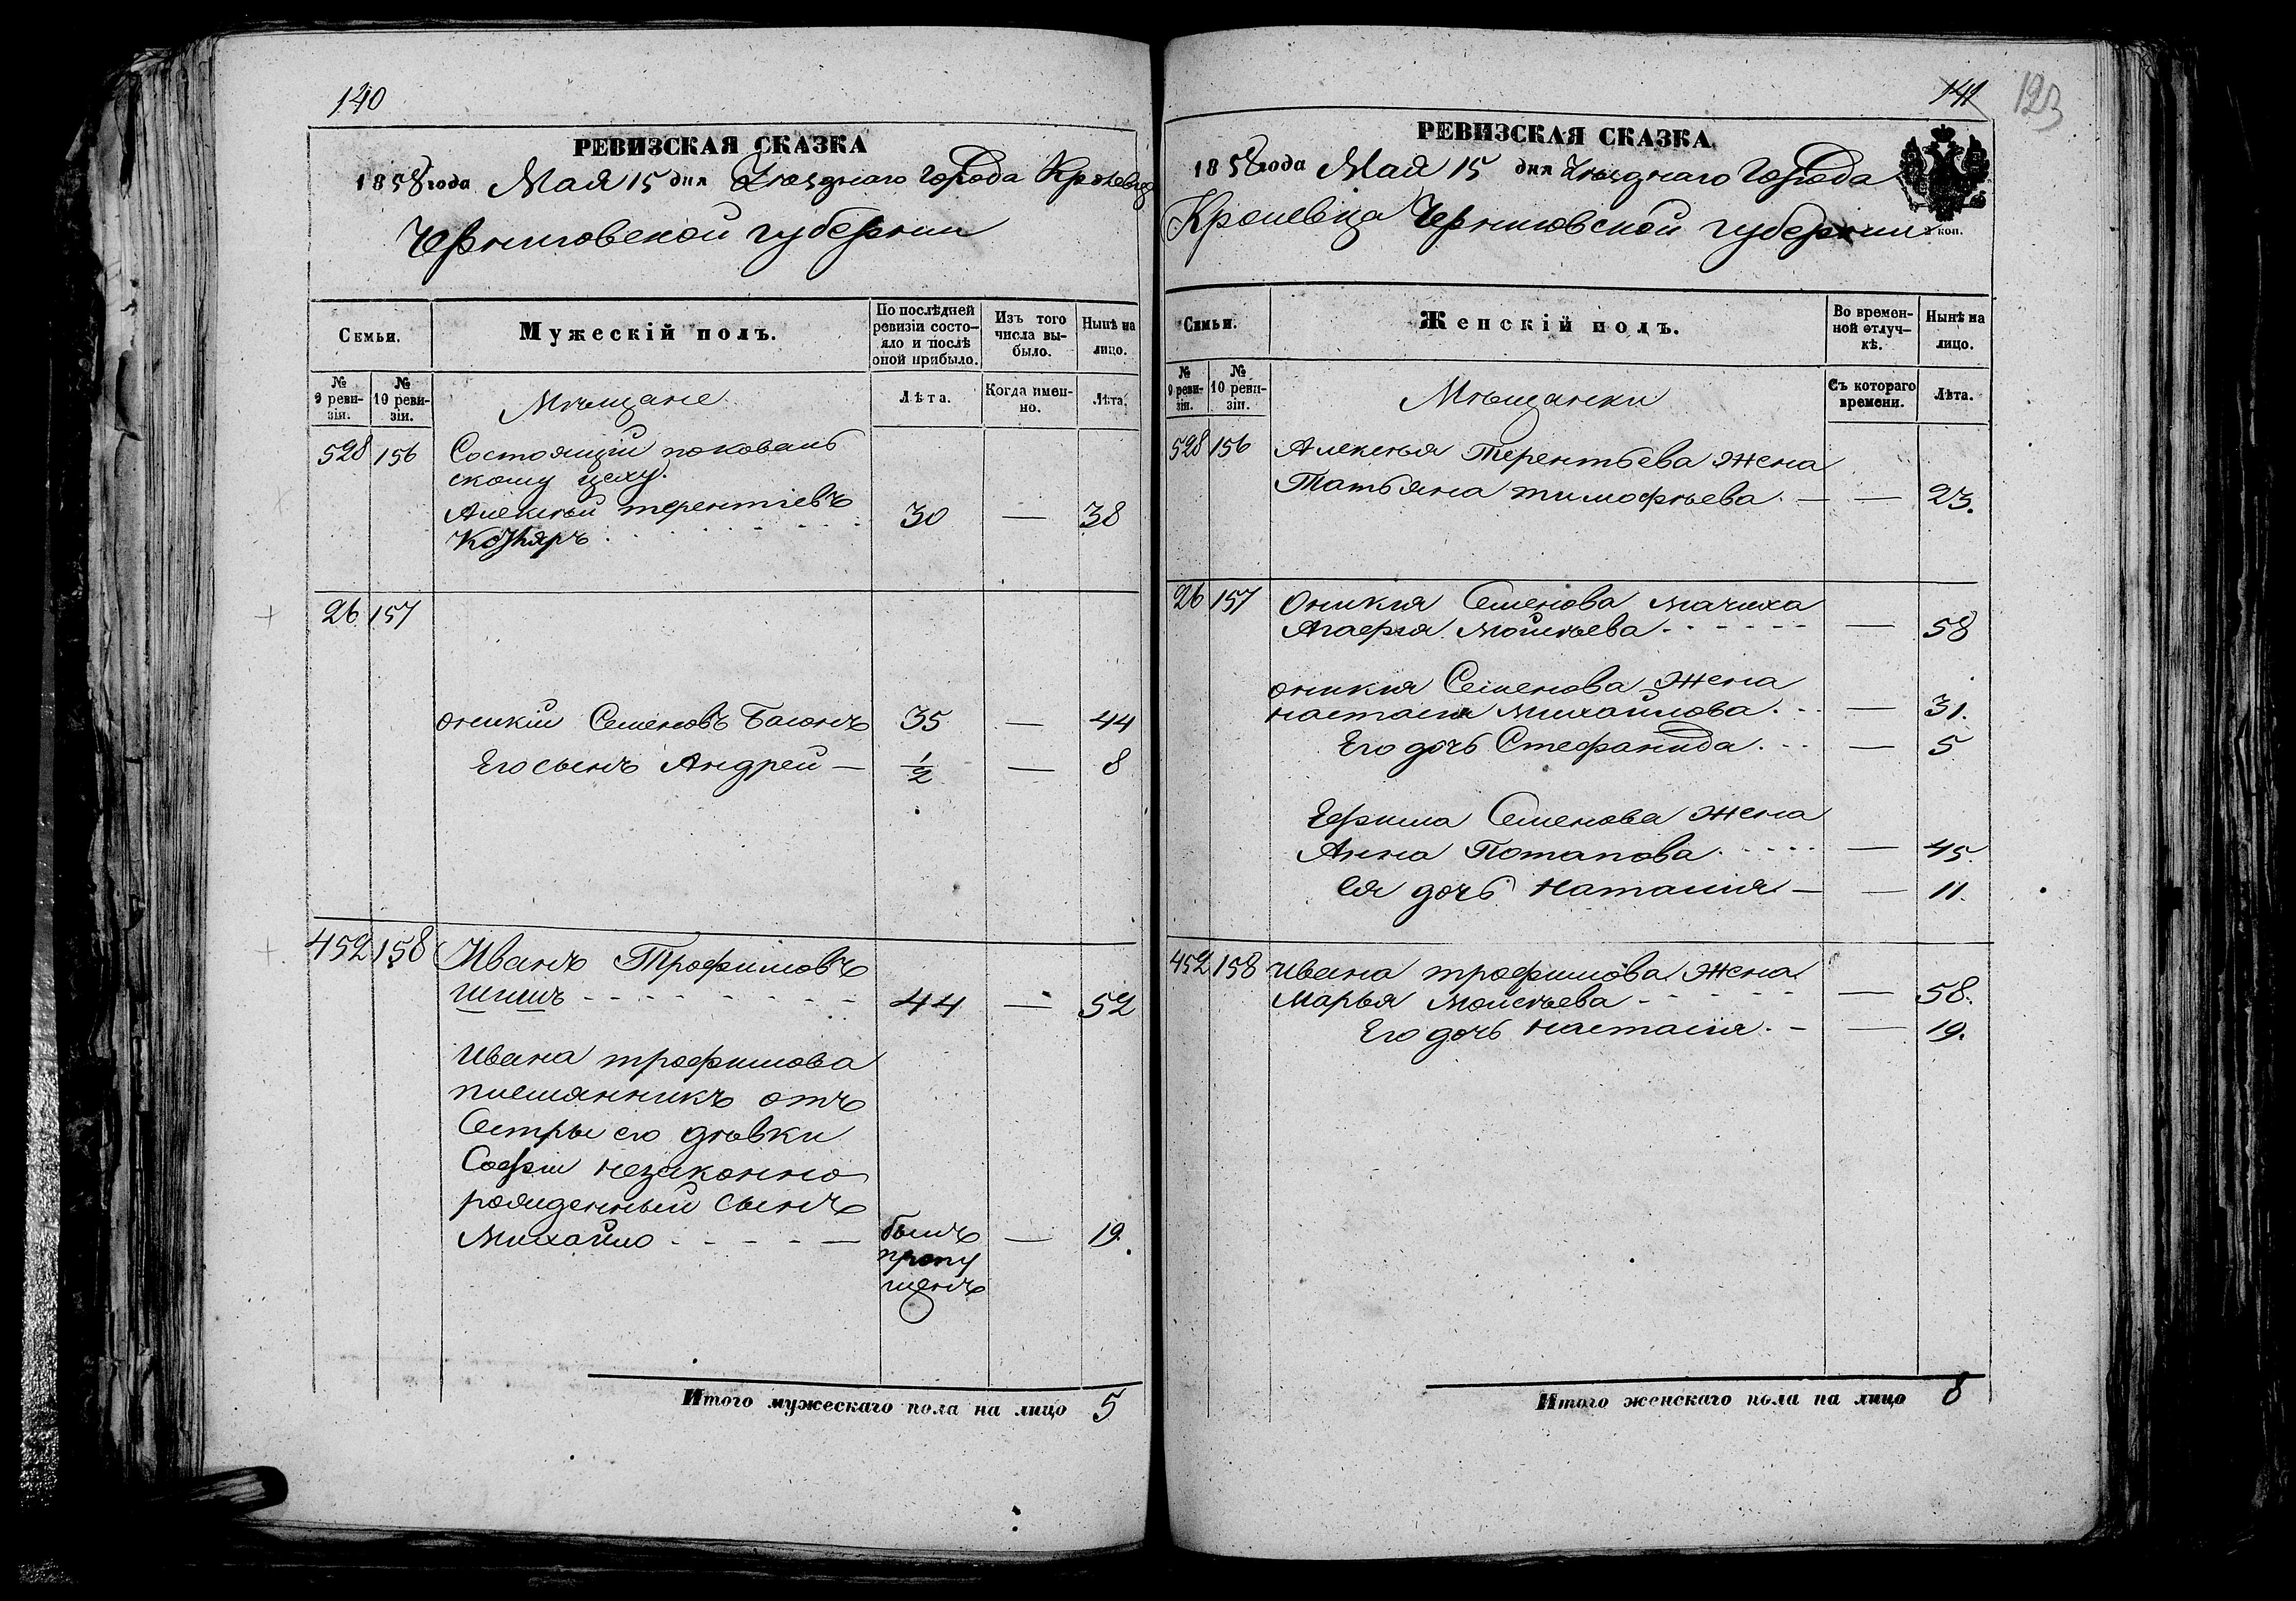 140
РЕВИЗСКАЯ СКАЗКА
1858 года Мая 15 дня Уѣзднаго города Кролевца
Черниговской губернии
Семьи.
Мужескій полъ.
По послѣдней ревизіи состояло и послѣ оной прибыло.
Изъ того числа выбыло.
Нынѣ на лицо.
№ 9 ревизіи.
№ 10 ревизіи.
Мѣщане
Лѣта.
Когда именно.
Лѣта.
528 156 Состоящій по коваль
скому цеху.
Алексѣй терентіевъ 30 — 38
26 157
оникій Семеновъ 35 — 44
Его сынъ Андрей — 1/2 — 8
452 158 Иванъ Трофимовъ
Шишъ 44 — 52
Ивана трофимова
племянникъ отъ
Сестры его дѣвки
Софіи незаконно
рожденный сынъ
Михайло был — 19.
пропу
щенъ
Итого мужескаго пола на лицо 5
141 123
РЕВИЗСКАЯ СКАЗКА
1858 года Мая 15 дня Уѣзднаго Города
Кролевца Черниговской губернии
коп.
Семьи.
Женскій полъ.
Во временной отлучкѣ.
Нынѣ на лицо.
№ 9 ревизіи.
№ 10 ревизіи.
Мѣщанки
Съ котораго времени.
Лѣта.
528 156 Алексѣя Терентьева жена
Татьяна тимофѣева. — — 23.
26 157 Оникия Семенова мачиха
Агафия Мойсѣева — 58
оникия Семенова жена
настасия Михайлова. — 31.
Его дочь Стефанида. — 5
Ефима Семенова жена
Анна Потапова — 45.
Ея дочь Наталия — — 11.
452 158 Ивана трофимова жена
Марья Мойсѣева — 58.
Его дочь настасия. — — 19.
Итого женскаго пола на лицо 8